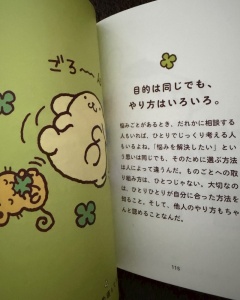 ごろ〜ん
目的は同じでも、
やり方はいろいろ。
悩みごとがあるとき、だれかに相談する
人もいれば、ひとりでじっくり考える人
もいるよね。「悩みを解決したい」と
いう思いは同じでも、そのために選ぶ方法
は人によって違うんだ。ものごとへの取
り組み方は、ひとつじゃない。大切なの
は、ひとりひとりが自分に合った方法を
知ること。そして、他人のやり方もちゃ
んと認めることなんだ。
118